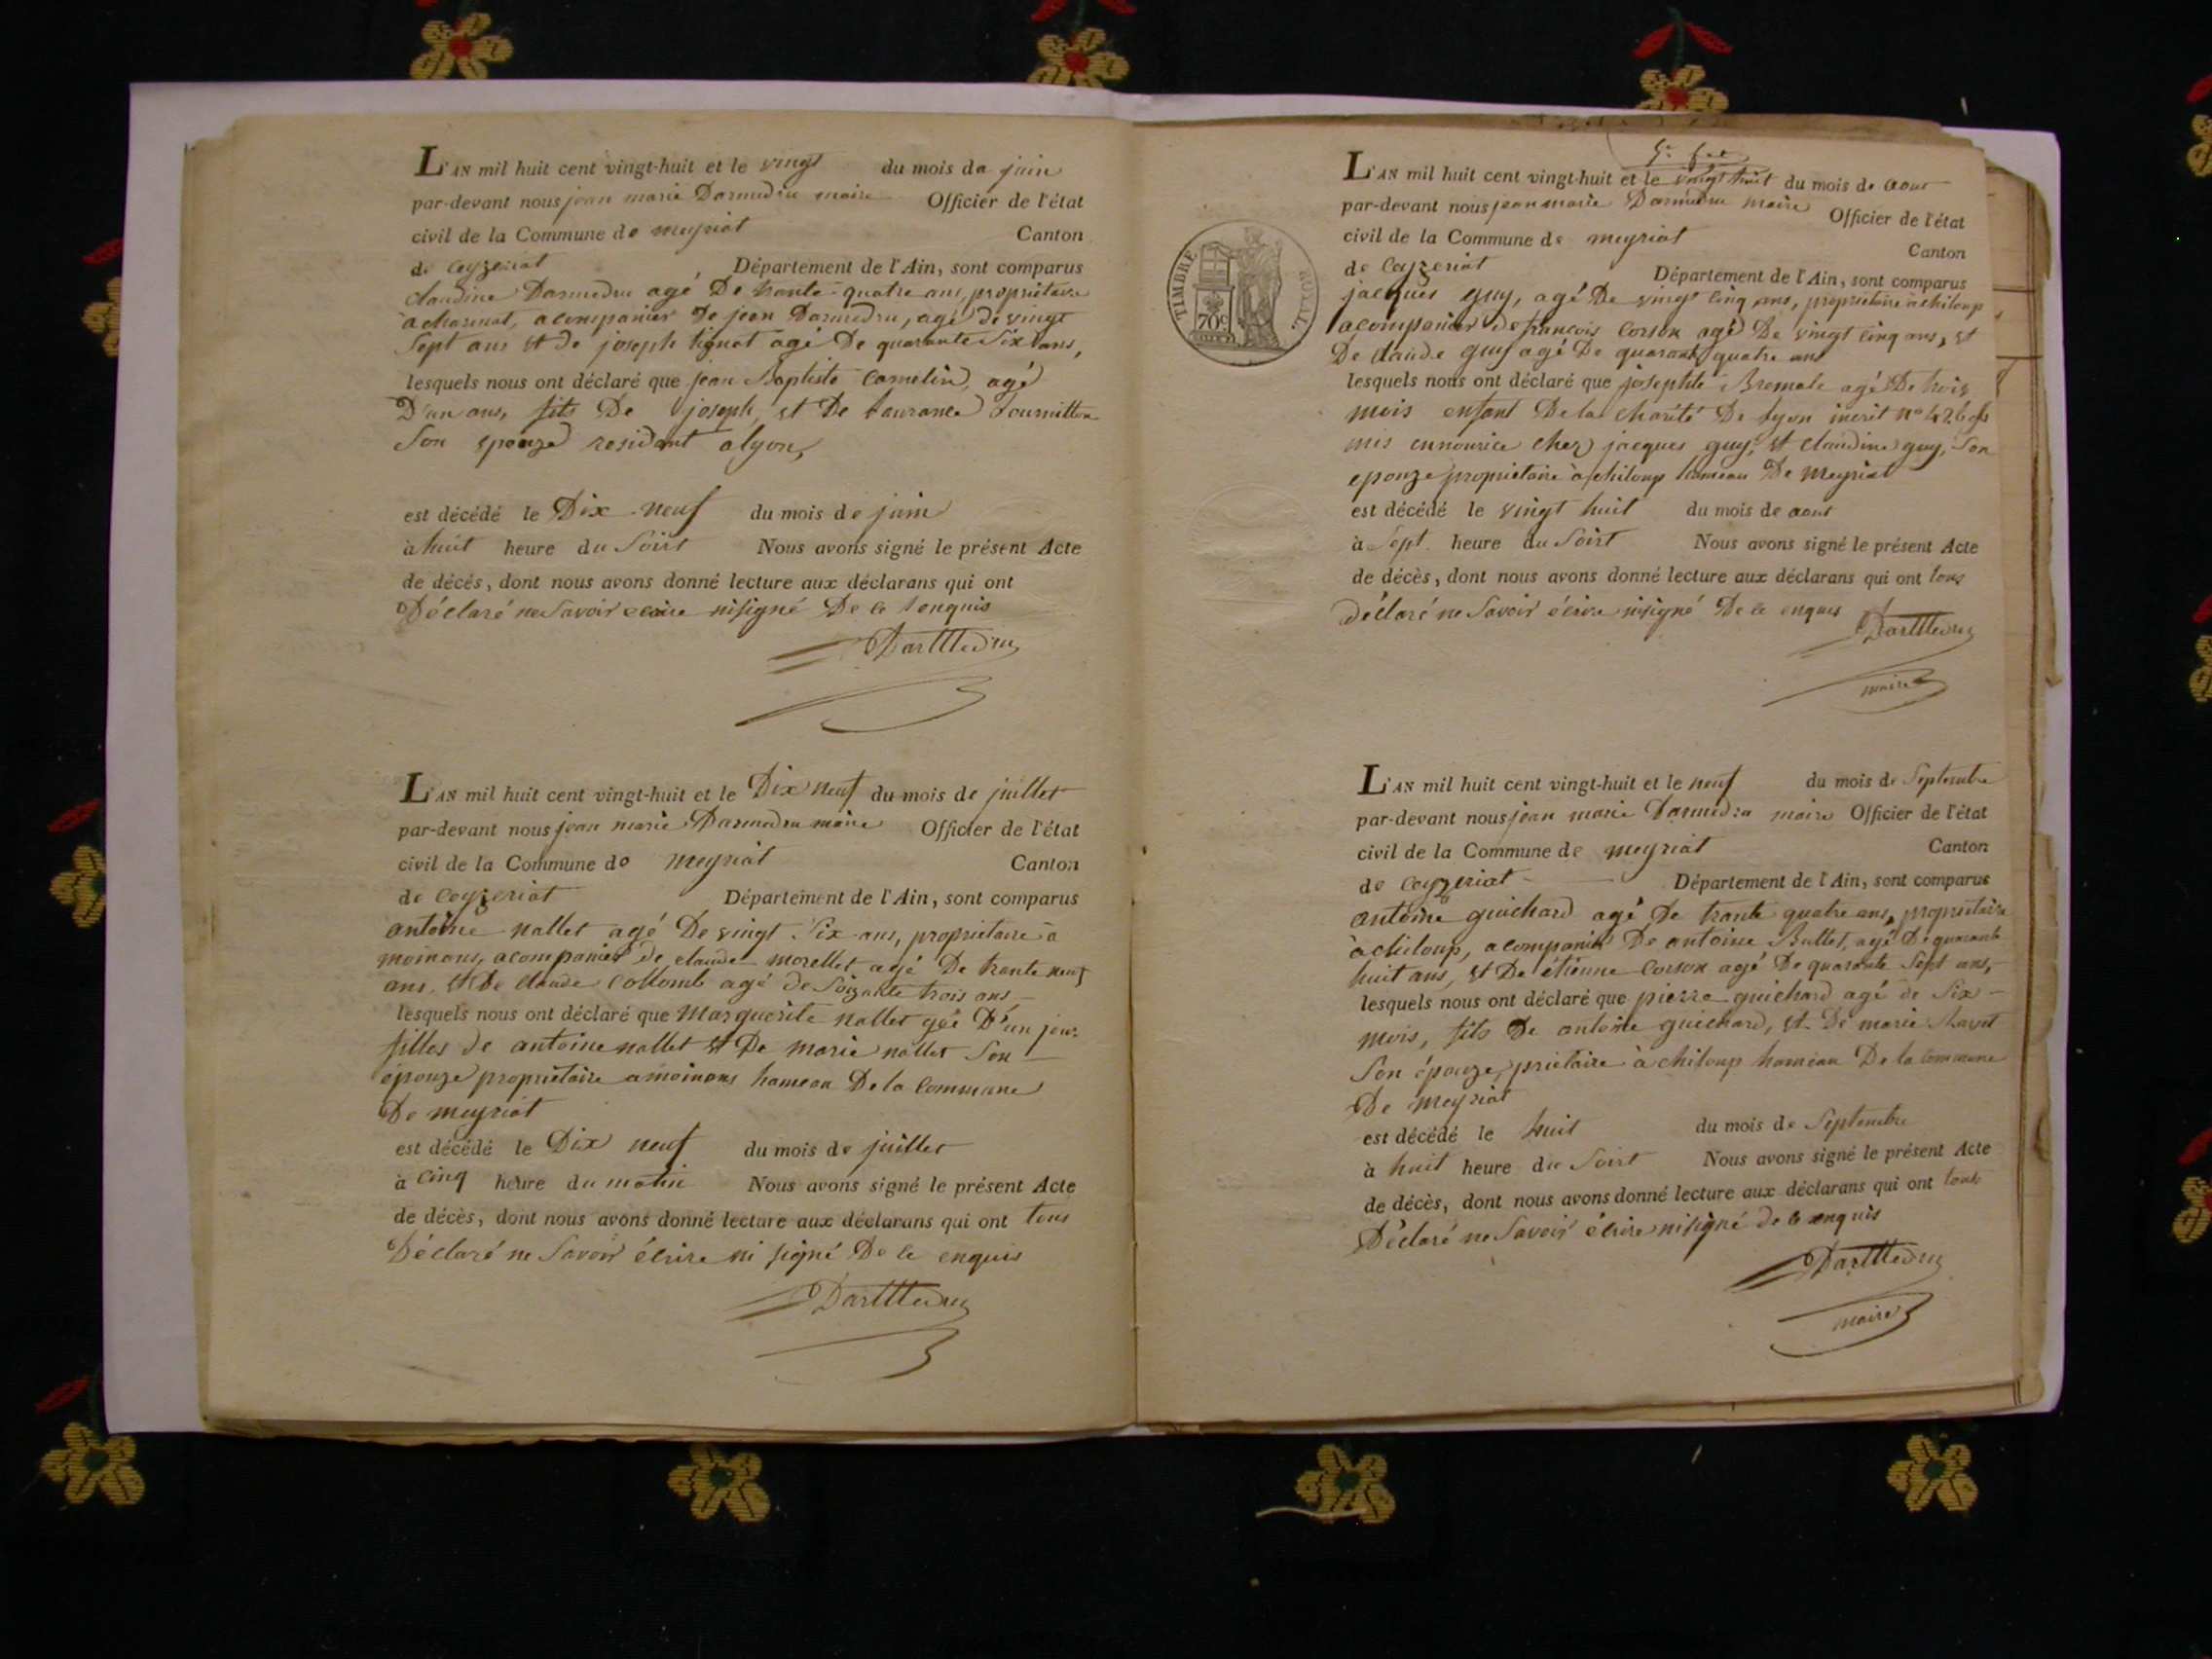 L'AN mil huit cent vingt-huit et le vingt du mois de juin
par-devant nous jean marie Darmedru maire Officier de l'état
civil de la Commune de meyriat Canton
de Ceyzeriat Département de l'Ain, sont comparus
claudine Darmedru agé De trante-quatre ans, propriétaire
à charinat, acompanier De jean Darmedru, agé de vingt
Sept ans et de joseph agé De quarante Six ans,
lesquels nous ont déclaré que jean Baptiste Camelin, agé
D'un ans, fils De joseph, et De
Son epouze residant alyon,
est décédé le Dix-neuf du mois de juin
à huit heure du Soirt Nous avons signé le présent Acte
de décés, dont nous avons donné lecture aux déclarans qui ont
Déclaré ne Savoir ecrire nisigné De ce enquis
DarMedru
L'AN mil huit cent vingt-huit et le Dix neuf du mois de juillet
par-devant nous jean marie Darmedru maire Officier de l'état
civil de la Commune de meyriat Canton
de Ceyzeriat Département de l'Ain, sont comparus
antoine nallet agé De vingt Six ans, proprietaire a
moinans, acompanier de claude morellet agé De trante neuf
ans, et De claude Collomb agé de Soizante trois ans
lesquels nous ont déclaré que Marguerite nallet gée D'un jour
filles de antoine nallet et De marie nallet Son
épouze propriétaire amoinans hameau De la Commune
De meyriat
est décédé le Dix neuf du mois de juillet
à Cinq heure du matin Nous avons signé le présent Acte
de décès, dont nous avons donné lecture aux déclarans qui ont tous
Déclaré ne Savoir écrire ni signé De ce enquis
DarMedru
L'AN mil huit cent vingt-huit et le vingt huit du mois de aout
par-devant nous jean marie Darmedru maire Officier de l'état
civil de la Commune de meyriat Canton
de Ceyzeriat Département de l'Ain, sont comparus
TIMBRE ROYAL
70c
jacques guy, agé De vingt Cinq ans, propriétaire achiloup
acompanier de francois Corson agé De vingt Cinq ans, et
De claude guy agé De quarante quatre ans
lesquels nous ont déclaré que josephte Bremale agé De trois
mois enfant De la Charité De lyon inscrit n°
mis ennourice chez jacques guy, et claudine guy, Son
epouze propriétaire à chiloup hameau De Meyriat
est décédé le vingt huit du mois de aout
à Sept heure du Soirt Nous avons signé le présent Acte
de décès, dont nous avons donné lecture aux déclarans qui ont tous
déclaré ne Savoir écrire nisigné De ce enquis
DarMedru
maire
L'AN mil huit cent vingt-huit et le neuf du mois de Septembre
par-devant nous jean marie Darmedru maire Officier de l'état
civil de la Commune de meyriat Canton
de Ceyzeriat Département de l'Ain, sont comparus
antoine guichard agé De trante quatre ans, propriétaire
à chiloup, acompanier De antoine Bullet, agé De quarante
huit ans, et De étienne Corson agé De quarante Sept ans,
lesquels nous ont déclaré que pierre guichard agé de Six
mois, fils De antoine guichard, et De marie
Son épouze, priétaire à chiloup hameau De la Commune
De meyriat
est décédé le huit du mois de Septembre
à huit heure du Soirt Nous avons signé le présent Acte
de décès, dont nous avons donné lecture aux déclarans qui ont tous
Déclaré ne Savoir écrire nisigné de ce enquis
DarMedru
maire